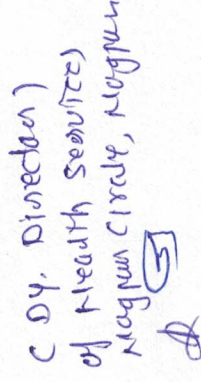 ( Dy. Director)
of Health Services
Nagpur Circle, Nagpur
5